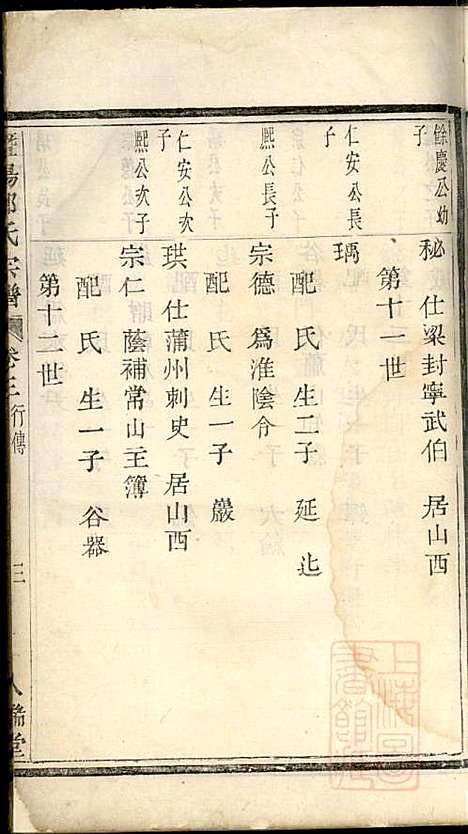 餘慶公幼子
秘 仕梁封寧武伯 居山西
第十一世
仁安公長子
瑀
配 氏 生二子 延 辿
熙公長子
宗德 爲淮陰令
配 氏 生一子 巖
仁安公次子
珙 仕蒲州刺史 居山西
熙公次子
宗仁 蔭補常山主簿
配 氏 生一子 谷器
第十二世
暨陽 氏宗譜 卷三 行傳 三
上海圖書館藏